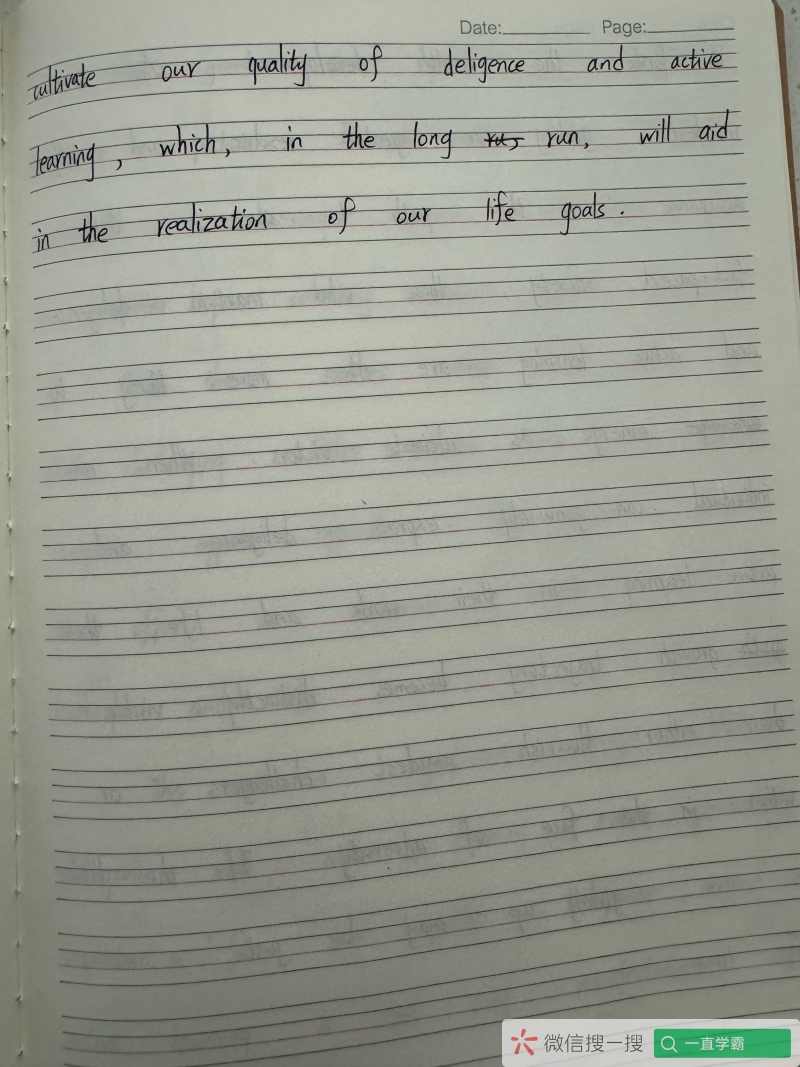 Date: Page:
cultivate our quality of deligence and active
learning, which, in the long run, will aid
in the realization of our life goals.
微信搜一搜
一直学霸